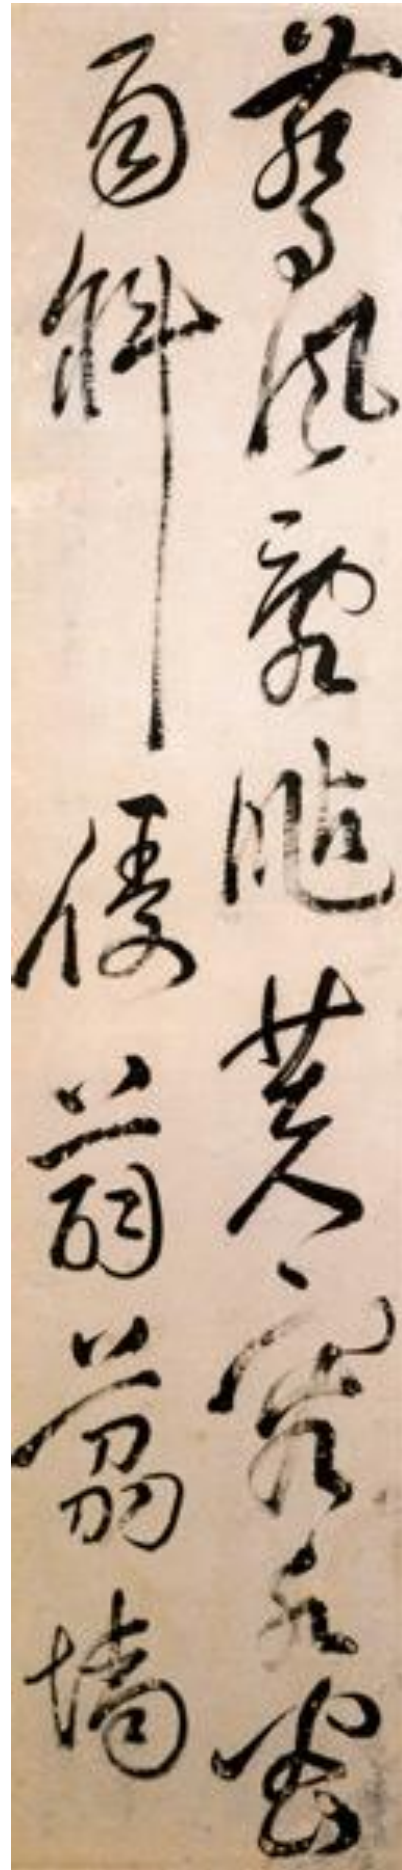 驚風亂颭芙蓉水密
雨斜侵薜荔墻